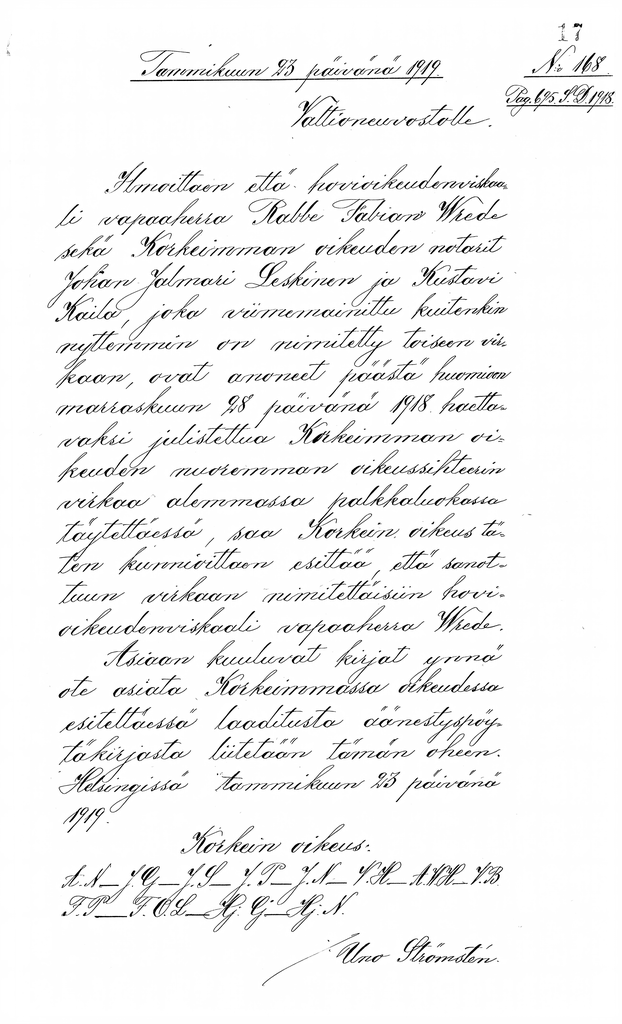 17
Tammikuun 23 päivänä 1919.
N:o 168.
Pag. 695. S.D. 1918.
Valtioneuvostolle.
Ilmoittaen että hovioikeudenviskaa-
li vapaaherra Rabbe Fabian Wrede
sekä Korkeimman oikeuden notarit
Johan Jalmari Leskinen ja Kustavi
Kaila, joka viimemainittu kuitenkin
nyttemmin on nimitetty toiseen vir-
kaan, ovat anoneet päästä huomioon
marraskuun 28 päivänä 1918 haetta-
vaksi julistettua Korkeimman oi-
keuden nuoremman oikeussihteerin
virkaa alemmassa palkkaluokassa
täytettäessä, saa Korkein oikeus tä-
ten kunnioittaen esittää, että sanot-
tuun virkaan nimitettäisiin hovi-
oikeudenviskaali vapaaherra Wrede.
Asiaan kuuluvat kirjat ynnä
ote asiata Korkeimmassa oikeudessa
esitettäessä laaditusta äänestyspöy-
täkirjasta liitetään tämän oheen.
Helsingissä tammikuun 23 päivänä
1919.
Korkein oikeus:
A.N_ J.G_ J.S_ J.P_ J.N_ V.H_ A.W.H_ V.B.
F.P_ F.O.L_ Hj.G_ Hj.N.
/ Uno Strömsten.